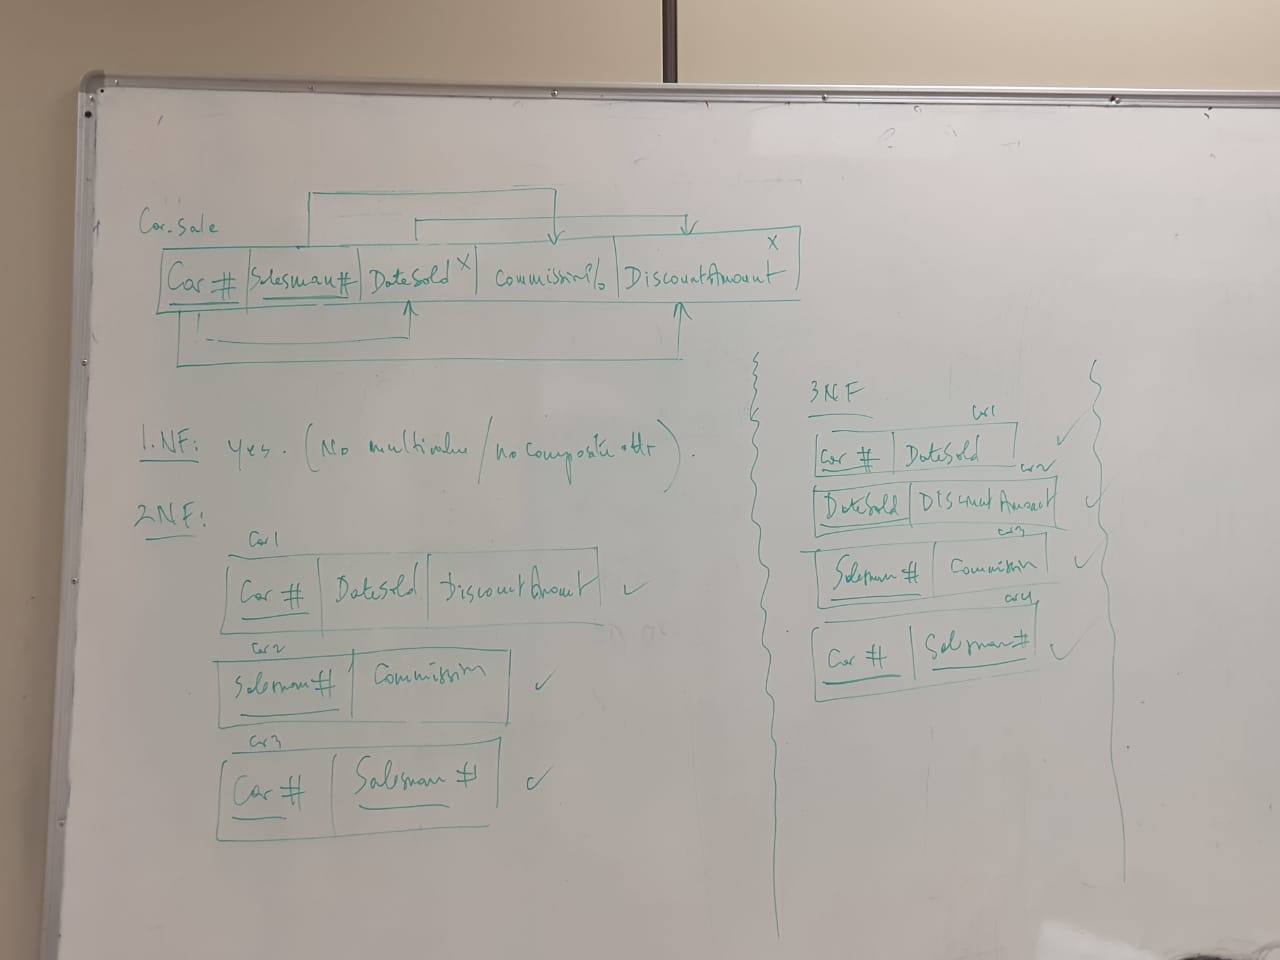 Car_Sale
Car # Salesman# DateSold X Commission% DiscountAmount X
1.NF: Yes. (No multivalue / no composite attr).
2NF:
Car1
Car # DateSold DiscountAmount ✓
Car2
Salesman# Commission ✓
Car3
Car # Salesman # ✓
3NF
Car1
Car # DateSold ✓
Car2
DateSold Discount Amount ✓
Car3
Salesman # Commission ✓
Car4
Car # Salesman# ✓